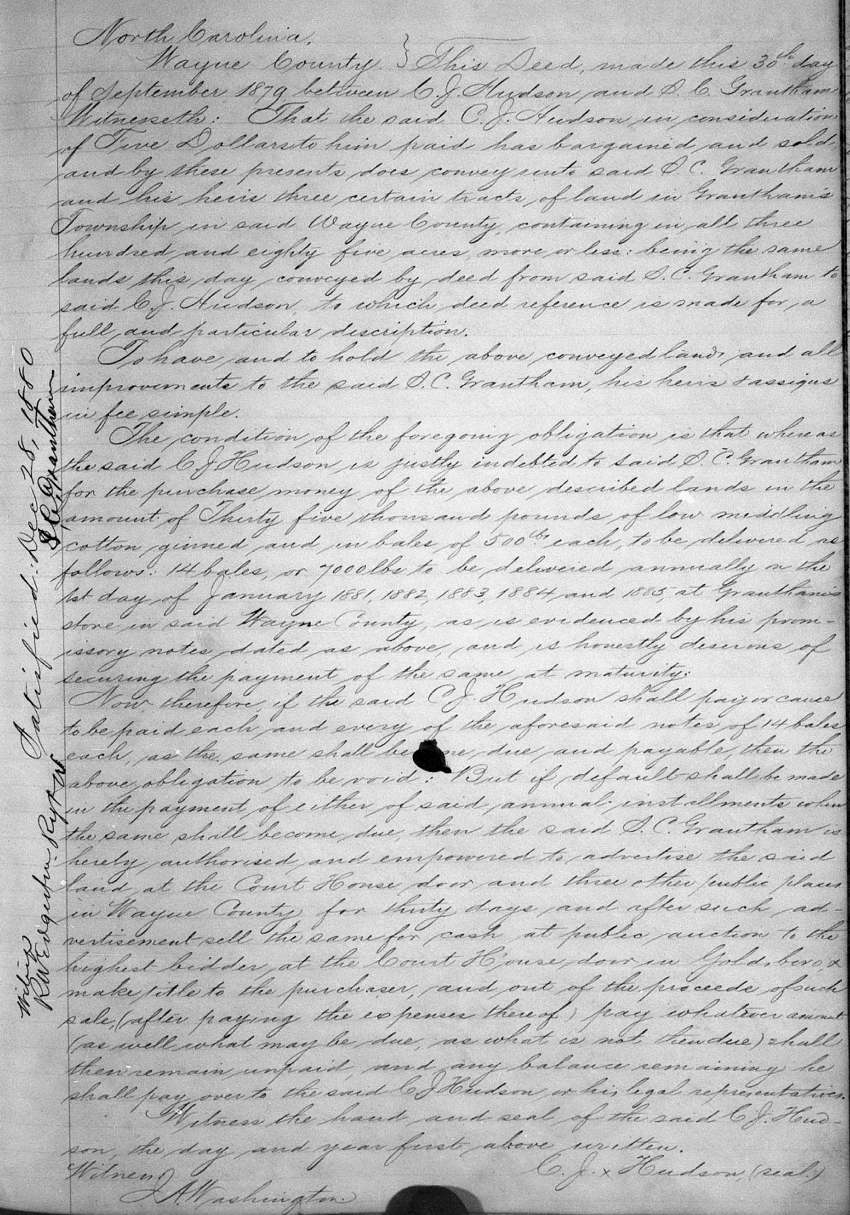 North Carolina.
Wayne County. } This Deed, made this 30th day
of September 1879 between C. J. Hudson and S. C. Grantham
Witnesseth: That the said C. J. Hudson in consideration
of Five Dollars to him paid has bargained and sold
and by these presents does convey unto said S. C. Grantham
and his heirs three certain tracts of land in Grantham's
Township in said Wayne County, containing in all three
hundred and eighty five acres, more or less: being the same
lands this day conveyed by deed from said S. C. Grantham to
said C. J. Hudson, to which deed reference is made for a
full and particular discription.
To have and to hold the above conveyed lands and all
improvements to the said S. C. Grantham, his heirs & assigns
in fee simple.
The condition of the foregoing obligation is that whereas
the said C J Hudson is justly indebted to said S. C. Grantham
for the purchase money of the above described lands in the
amount of Thirty five thousand pounds of low middling
cotton ginned and in bales of 500 lbs each, to be delivered as
follows: 14 bales, or 7000 lbs to be delivered annually on the
1st day of January 1881, 1882, 1883, 1884 and 1885, at Grantham's
store in said Wayne County, as is evidenced by his prom-
issory notes dated as above, and is honestly desirous of
securing the payment of the same at maturity:
Now therefore, if the said C. J. Hudson shall pay or cause
to be paid each and every of the aforesaid notes of 14 bales
each, as the same shall become due and payable, then the
above obligation to be void: But if default shall be made
in the payment of either of said annual installments when
the same shall become due, then the said S. C. Grantham is
hereby authorised and empowered to advertise the said
land, at the Court House door and three other public places
in Wayne County for thirty days, and after such ad-
vertisement sell the same for cash at public auction to the
highest bidder, at the Court House door in Goldsboro, &
make title to the purchaser, and out of the proceeds of such
sale, (after paying the expenses thereof) pay whatever amount
(as well what may be due, as what is not then due) shall
then remain unpaid, and any balance remaining he
shall pay over to the said C J Hudson, or his legal representatives.
Witness the hand and seal of the said C. J. Hud-
son, the day and year first above written.
Witness } C. J. x Hudson, (seal.)
J. A. Washington
Satisfied. Dec 28, 1880
S. C. Grantham
Witness